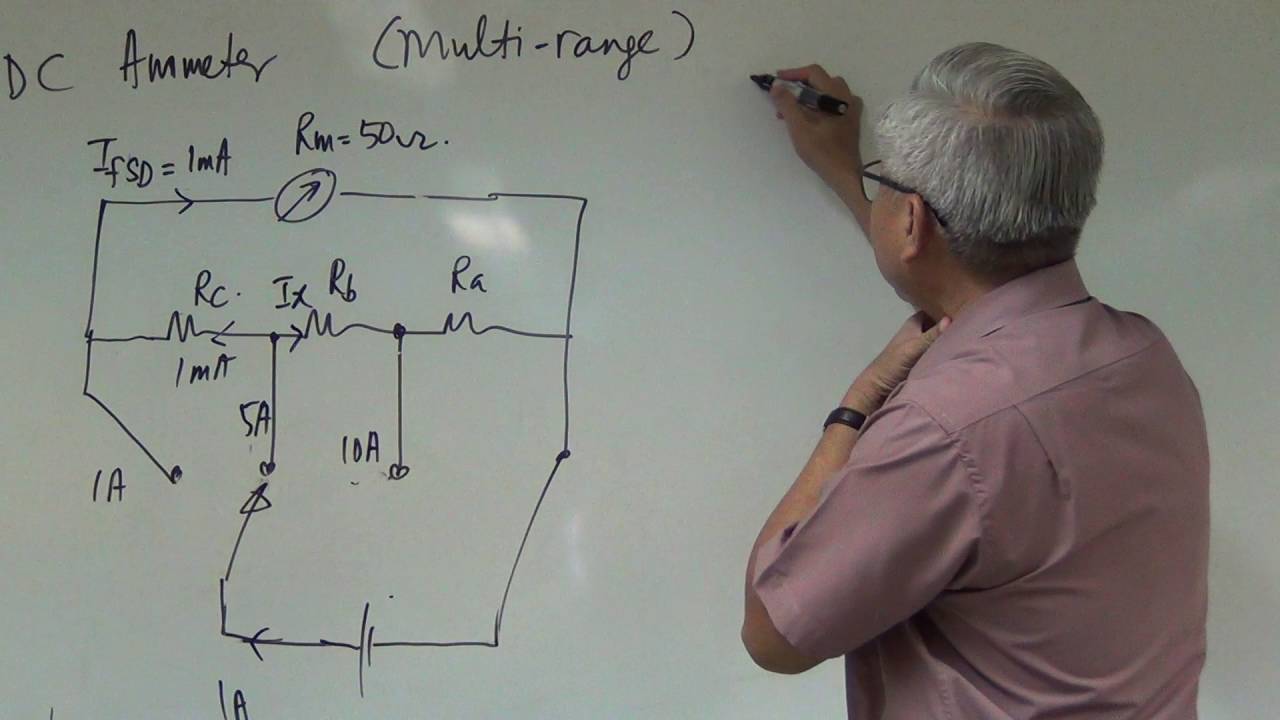 DC Ammeter (Multi-range)
Rm = 50Ω.
IFSD = 1mA
Rc. Ix Rb Ra
1mA
5A
10A
1A
1A